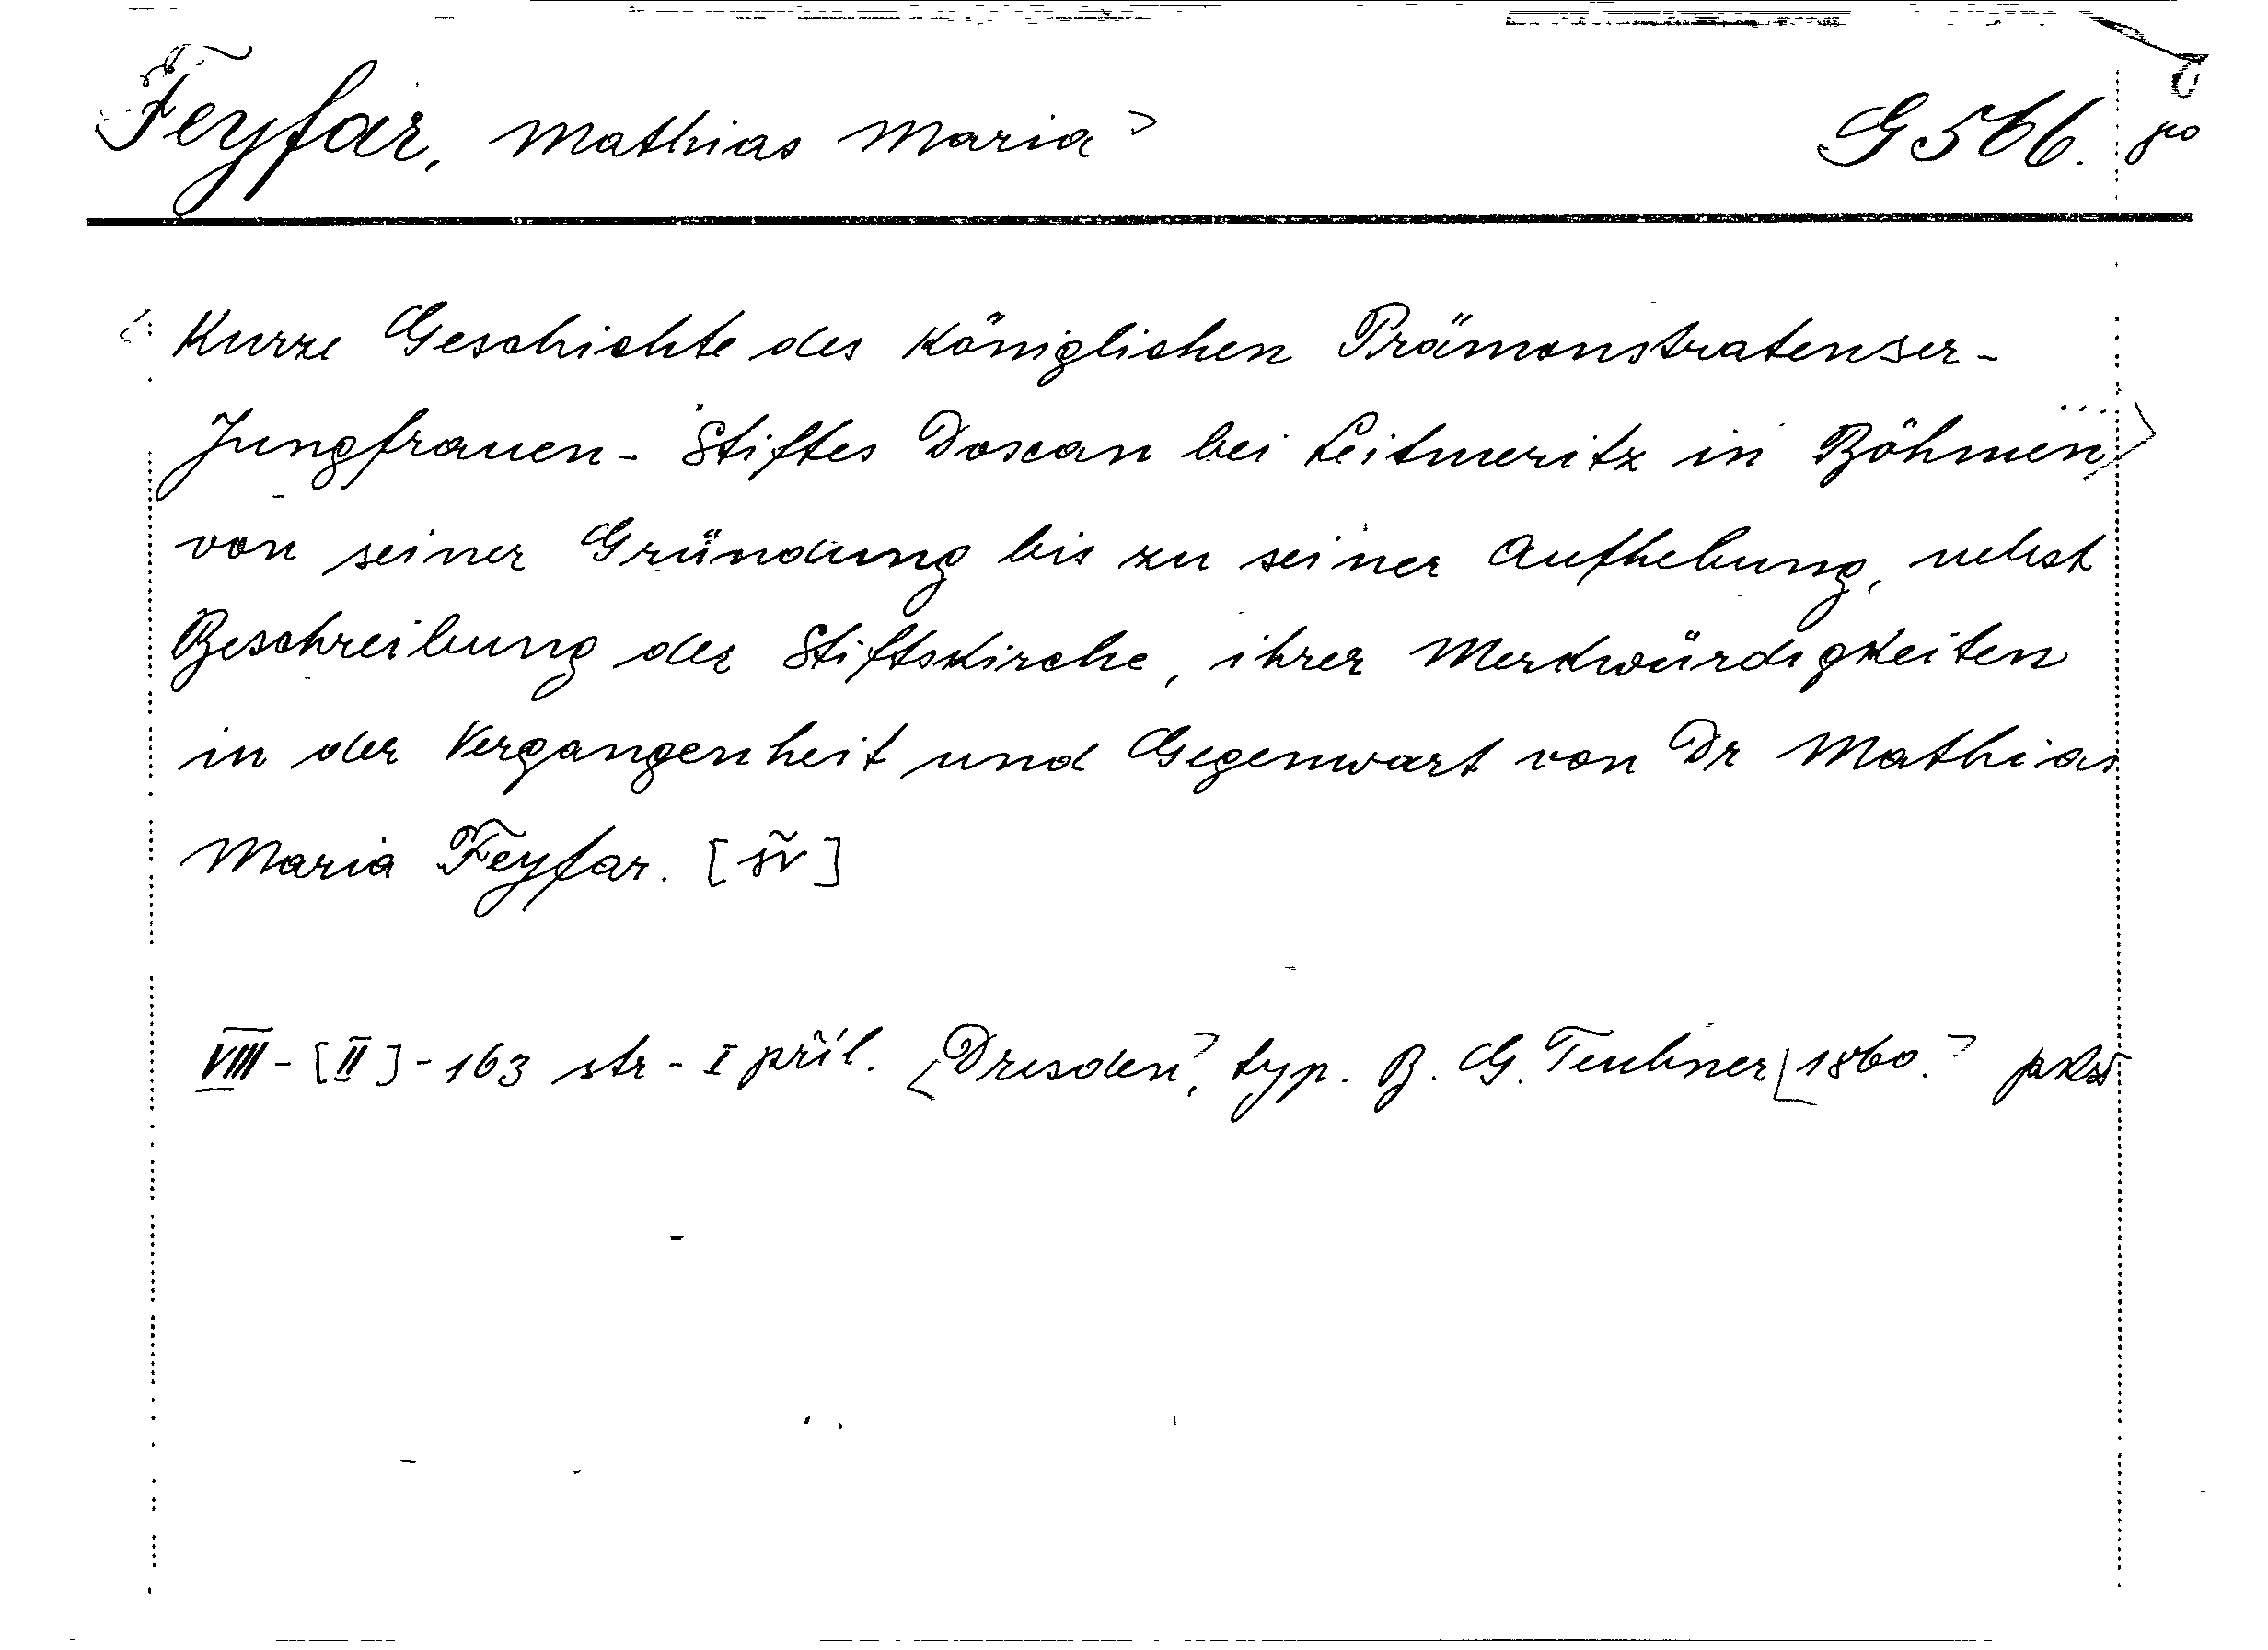 Feyfar, Mathias Maria G 566. po
Kurze Geschichte des königlichen Prämonstratenser-
Jungfrauen-Stiftes Doxan bei Leitmeritz in Böhmen
von seiner Gründung bis zu seiner Aufhebung, nebst
Beschreibung der Stiftskirche, ihrer Merkwürdigkeiten
in der Vergangenheit und Gegenwart von Dr Mathias
Maria Feyfar. [šv]
VIII-[II]-163 str-I příl. Dresden, typ. B. G. Teubner 1860.